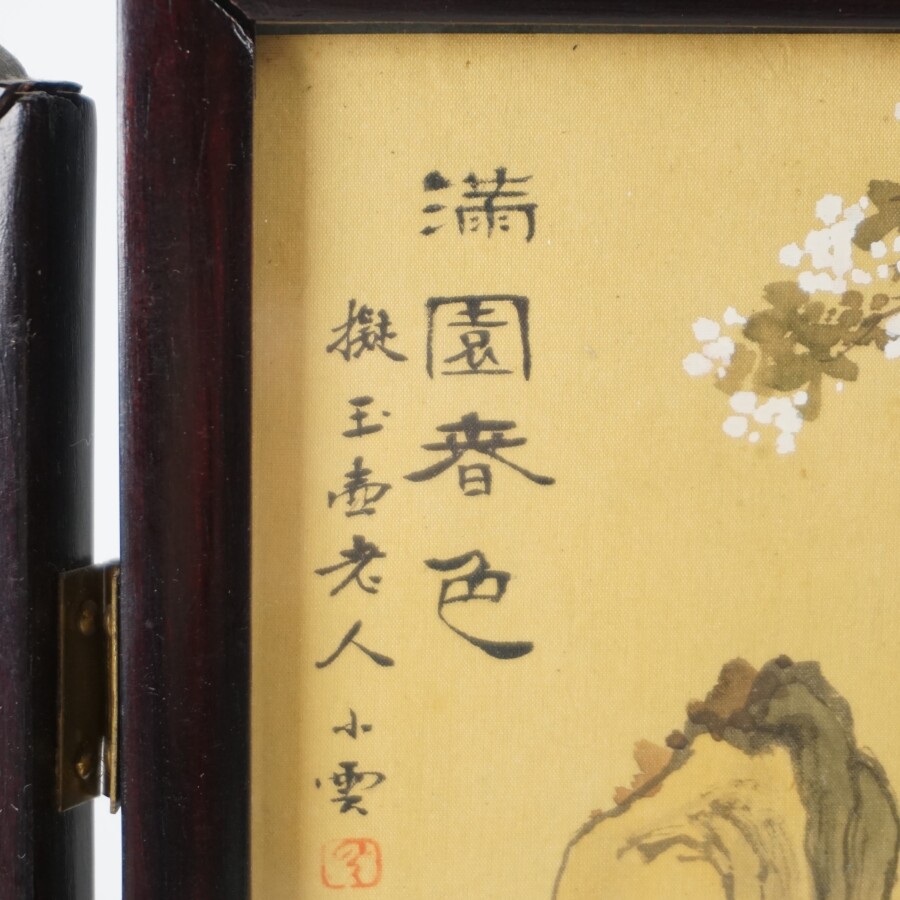 滿園春色
擬玉壺老人
小雲